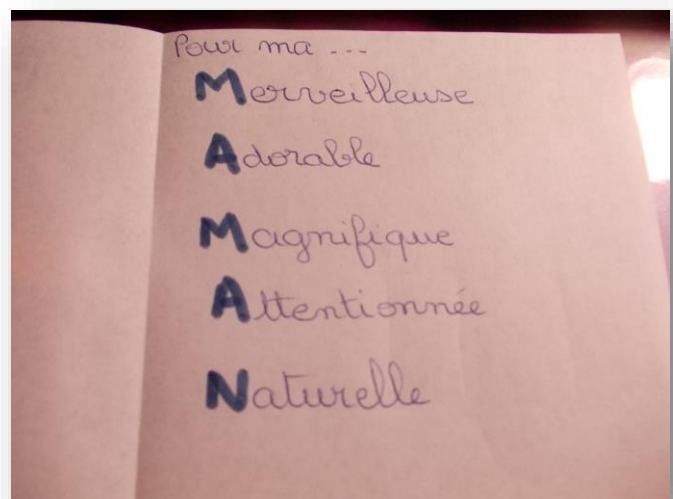 Pour ma ---
Merveilleuse
Adorable
Magnifique
Attentionnée
Naturelle